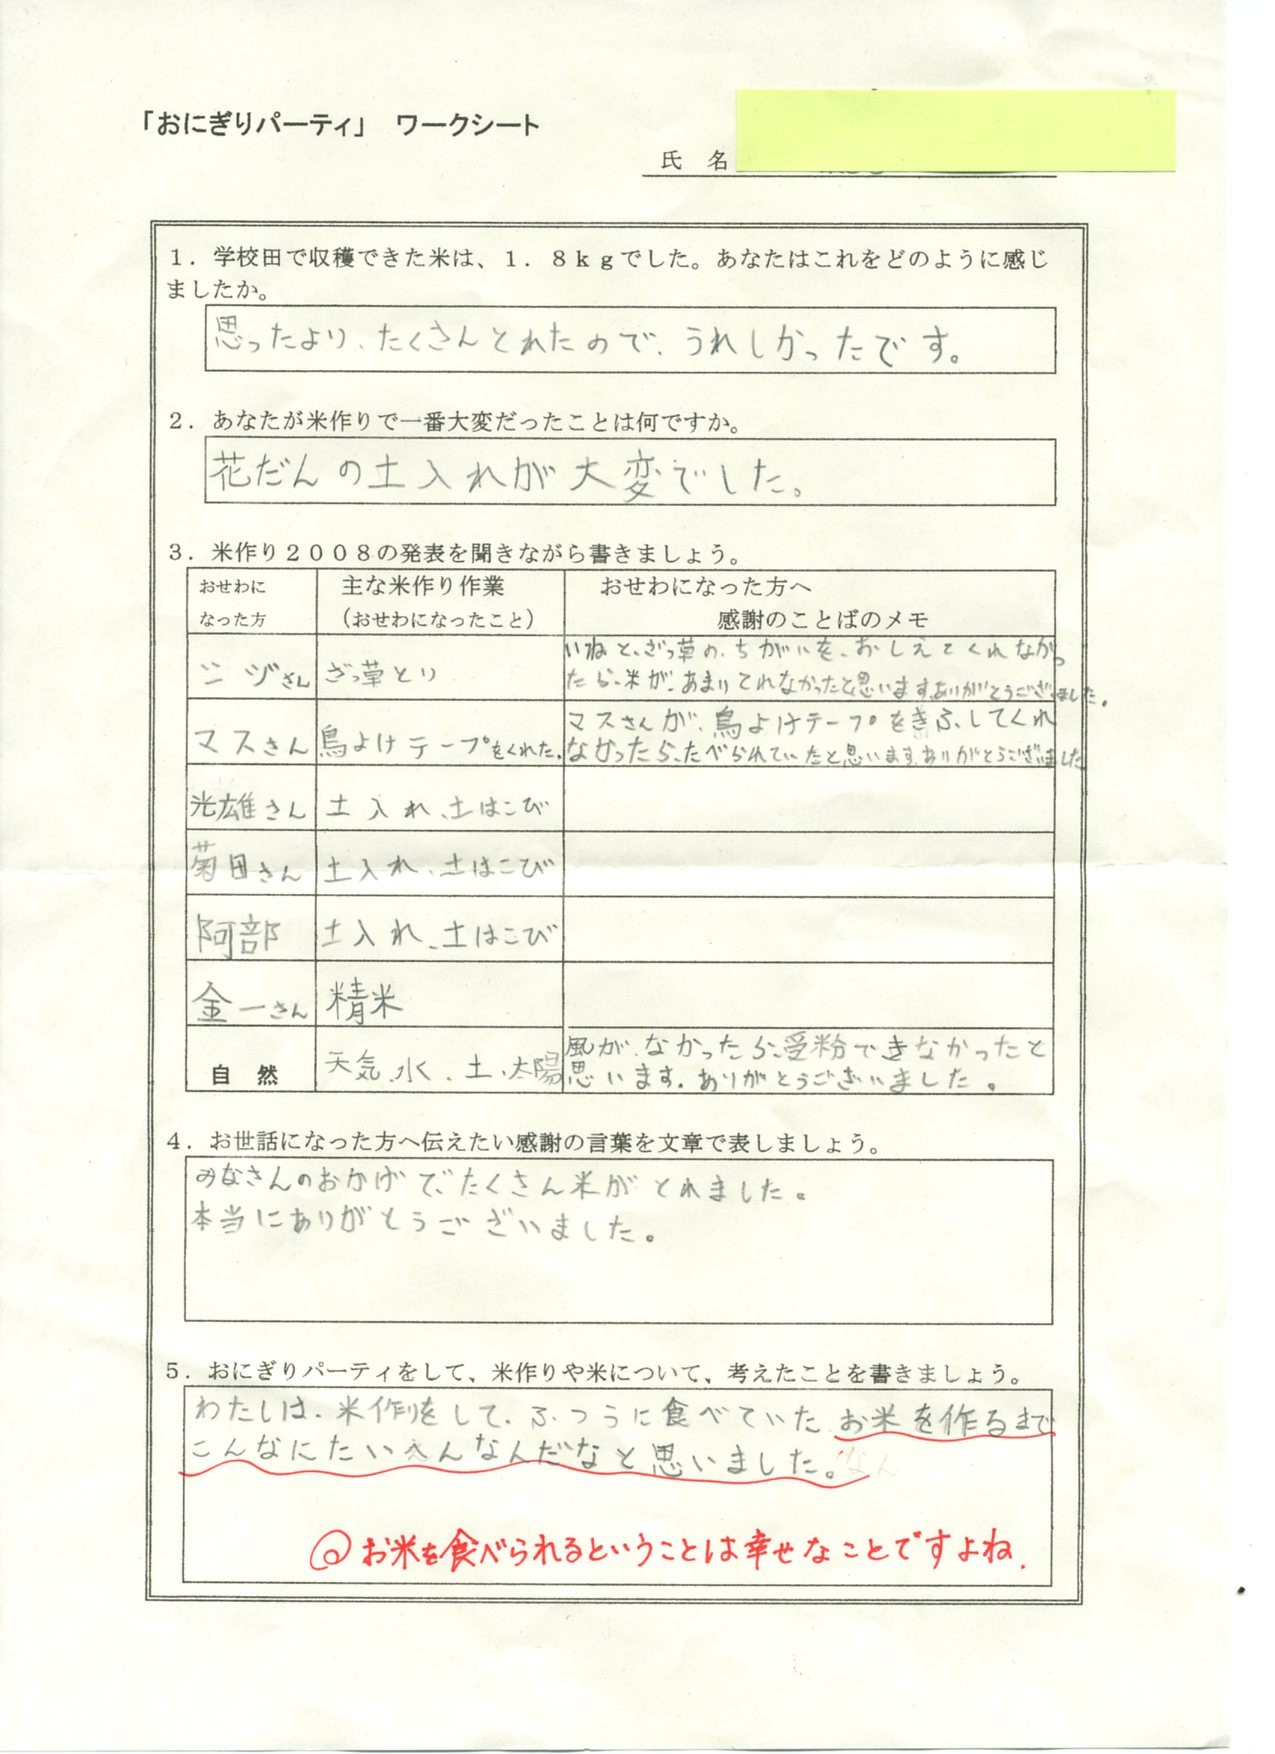 「おにぎりパーティ」 ワークシート
氏 名
1．学校田で収穫できた米は、1．8kgでした。あなたはこれをどのように感じ
ましたか。
思ったより、たくさんとれたので、うれしかったです。
2．あなたが米作りで一番大変だったことは何ですか。
花だんの土入れが大変でした。
3．米作り2008の発表を聞きながら書きましょう。
おせわに
なった方
主な米作り作業
（おせわになったこと）
おせわになった方へ
感謝のことばのメモ
シヅさん
ざっ草とり
いねと、ざっ草の、ちがいを、おしえてくれなかっ
たら、米が、あまりとれなかったと思います。ありがとうございました。
マスさん
鳥よけテープをくれた。
マスさんが、鳥よけテープをきふしてくれ
なかったら、たべられていたと思います。ありがとうございました
光雄さん
土入れ、土はこび
菊田さん
土入れ、土はこび
阿部
土入れ、土はこび
金一さん
精米
自 然
天気、水、土、太陽
風が、なかったら、受粉できなかったと
思います。ありがとうございました。
4．お世話になった方へ伝えたい感謝の言葉を文章で表しましょう。
みなさんのおかげで、たくさん米がとれました。
本当にありがとうございました。
5．おにぎりパーティをして、米作りや米について、考えたことを書きましょう。
わたしは、米作りをして、ふつうに食べていた、お米を作るまで
こんなにたいへんなんだなと思いました。
お米を食べられるということは幸せなことですよね.